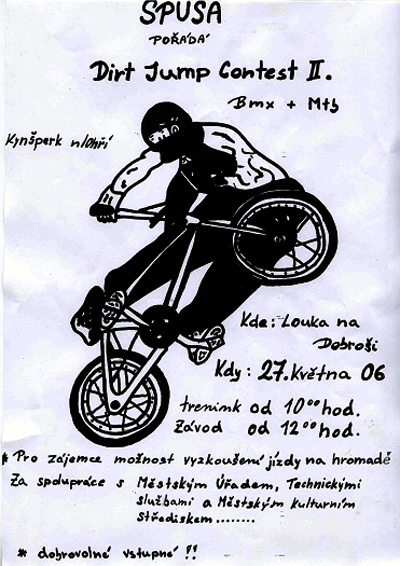 SPUSA
POŘÁDÁ
Dirt Jump Contest II.
Bmx + Mtb
Kynšperk n/Ohří
Kde: Louka na
Dobroši
Kdy: 27. Května 06
trenink od 10⁰⁰ hod.
Závod od 12⁰⁰ hod.
* Pro zájemce možnost vyzkoušení jízdy na hromadě
Za spolupráce s Městským Úřadem, Technickými
službami a Městským Kulturním
Střediskem........
* dobrovolné vstupné !!